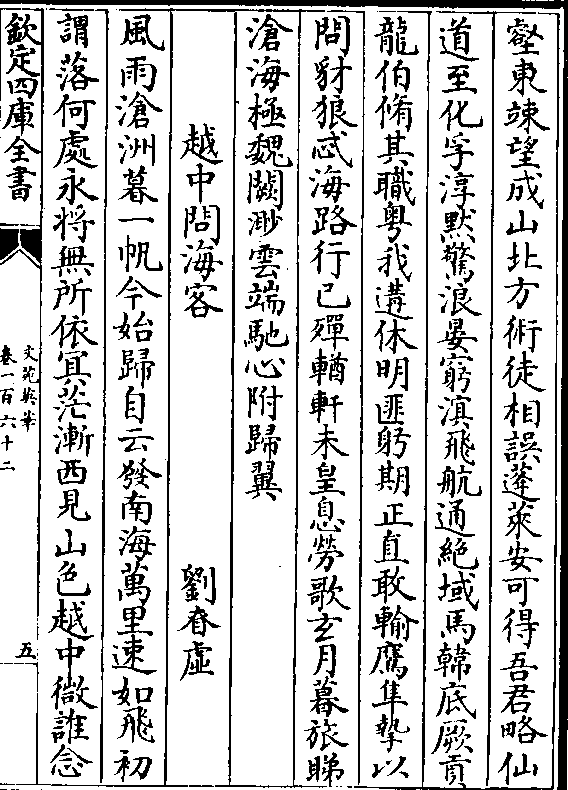 壑東竦望成山北方術徒相誤蓬萊安可得吾君略仙
道至化孚淳黙驚浪晏窮溟飛航通絶域馬韓底厥貢
龍伯脩其職粤我遘休明匪躬期正直敢輸鷹隼摯以
問豺狼忒海路行已殫輶軒未皇息勞歌玄月暮旅睇
滄海極魏闕渺雲端馳心附歸翼
越中問海客　劉眘虚
風雨滄洲暮一帆今始歸自云發南海萬里速如飛初
謂落何處永將無所依冥茫漸西見山色越中微誰念
欽定四庫全書
文苑英華
卷一百六十二
五